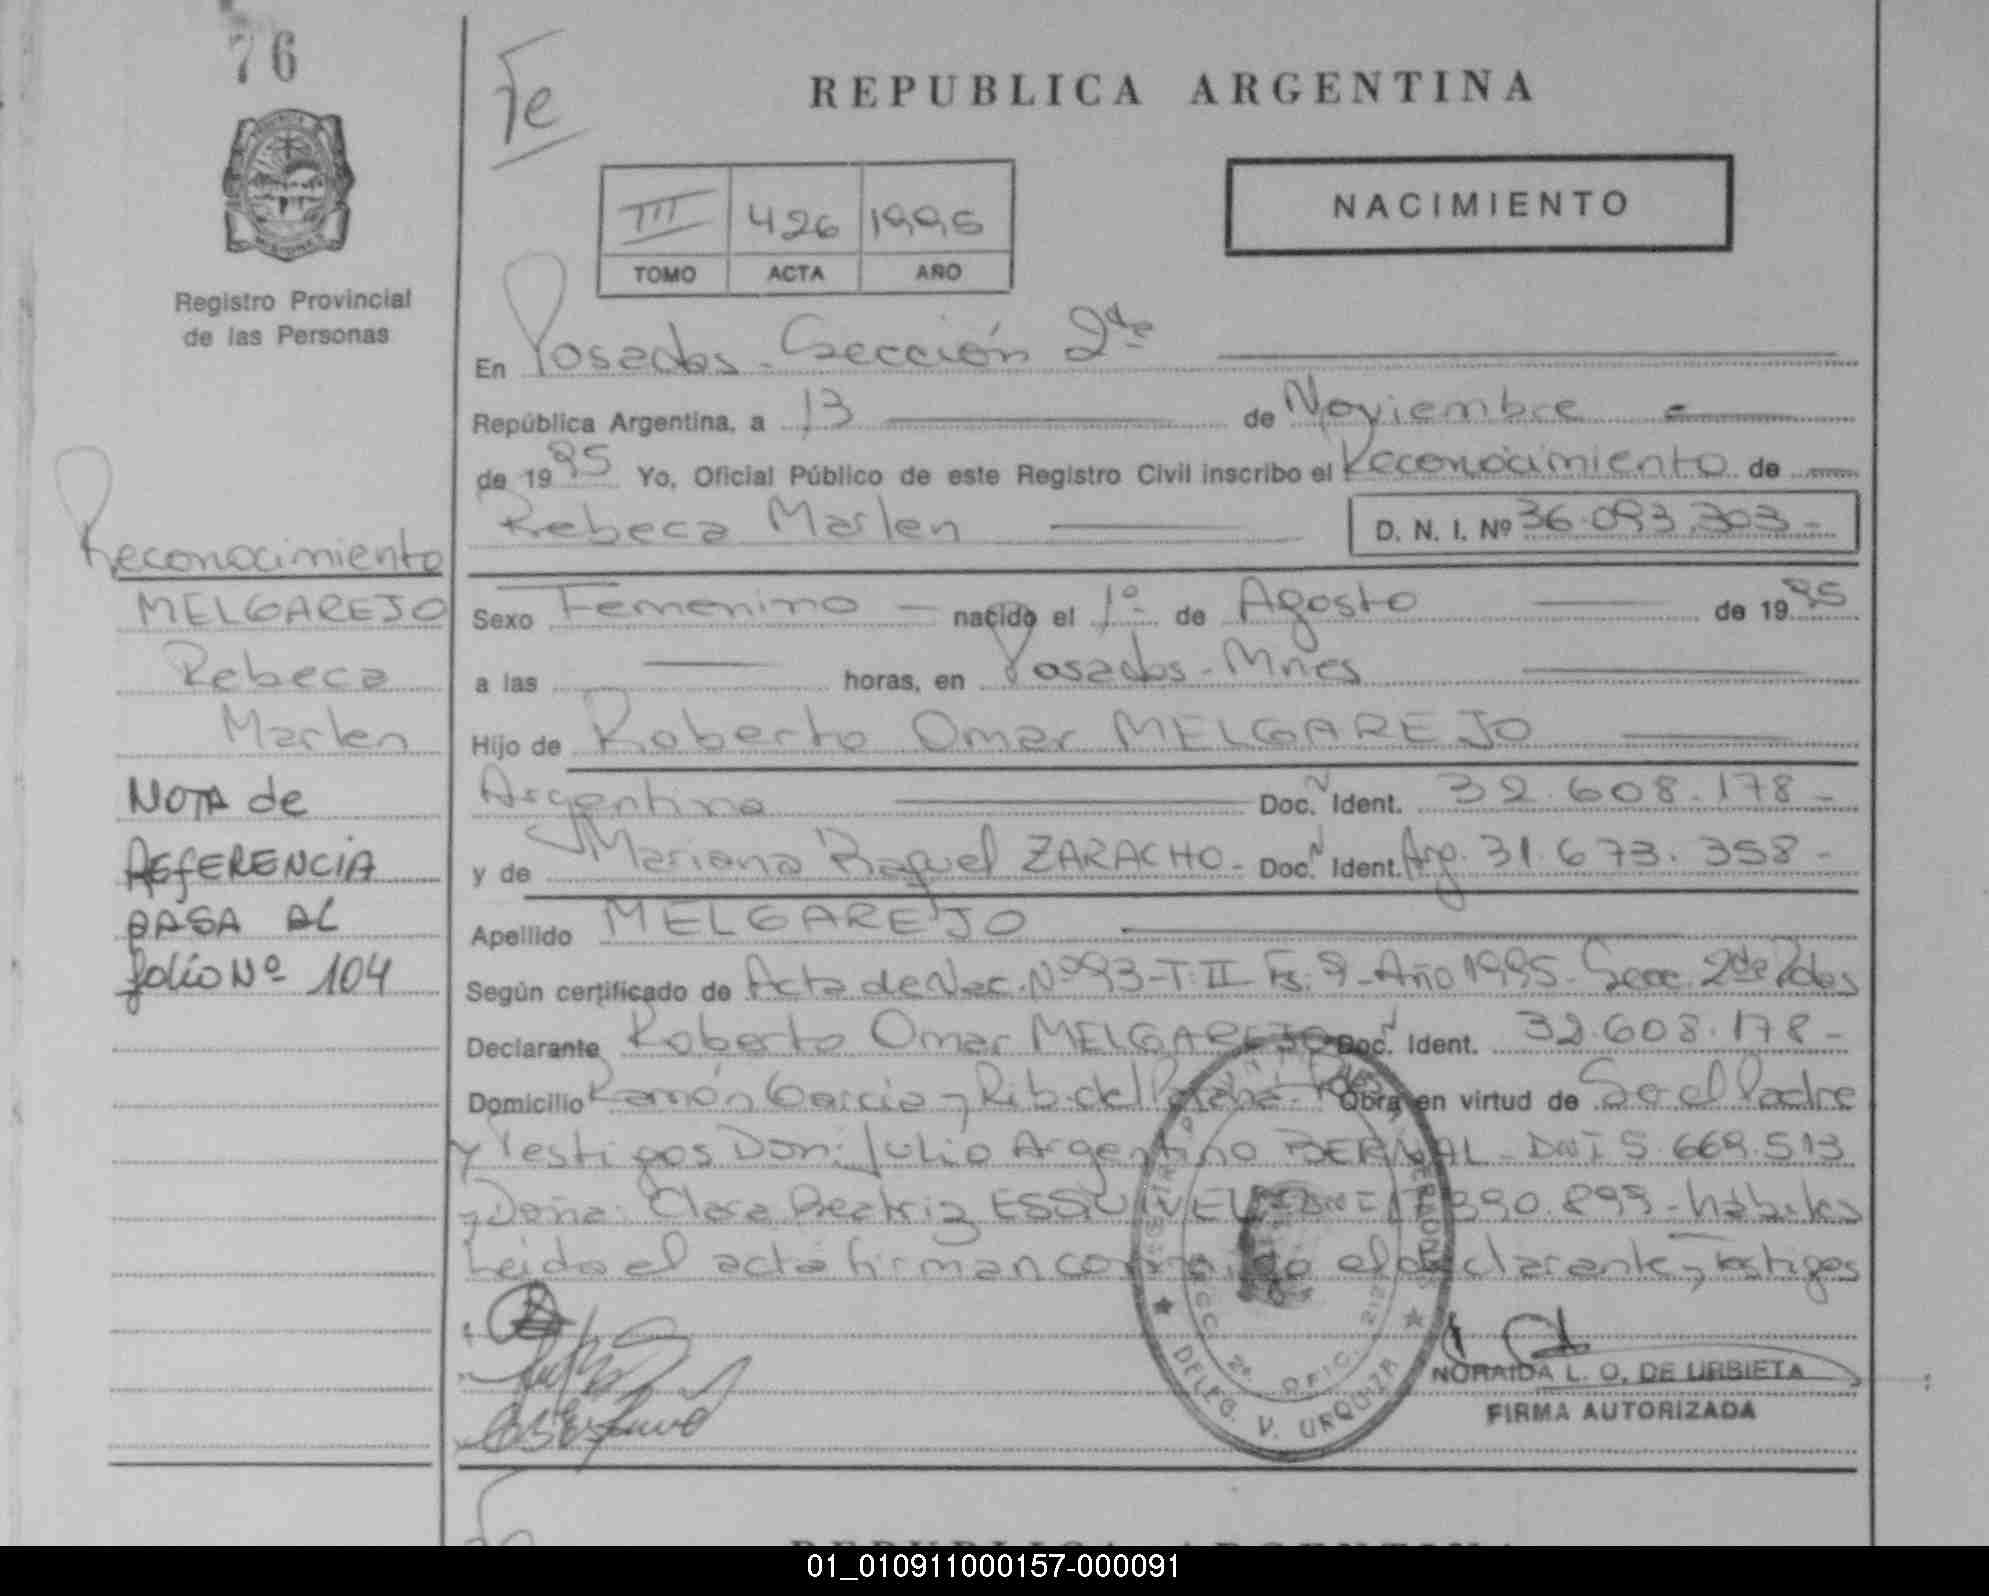 76
Fe
REPUBLICA ARGENTINA
III 426 1995
TOMO ACTA AÑO
NACIMIENTO
Registro Provincial
de las Personas
En Posadas - Sección 2da
República Argentina, a 13 de Noviembre
de 1995 Yo, Oficial Público de este Registro Civil inscribo el Reconocimiento de
Rebeca Marlen D. N. I. Nº 36.093.303-
Reconocimiento
MELGAREJO
Rebeca
Marlen
NOTA de
REFERENCIA
PASA AL
folio Nº 104
Sexo Femenino nacido el 1º de Agosto de 1995
a las horas, en Posadas - Mnes
Hijo de Roberto Omar MELGAREJO
Argentina Doc. Ident. 32.608.178-
y de Mariana Raquel ZARACHO - Doc. Ident. Arg. 31.673.358-
Apellido MELGAREJO
Según certificado de Acta de Nac. Nº 93-T. II Fs. 9 - Año 1995 - Secc. 2da Pdas
Declarante Roberto Omar MELGAREJO Doc. Ident. 32.608.178-
Domicilio Ramón Garcia y Rib. del Obra en virtud de Ser el Padre
y Testigos Don: Julio Argentino BERNAL - DNI 5.669.513
y Doña: Clara Beatriz 390.899 - hábiles
Leida el acta firman conmigo el declarante y testigos
DELEG. V. URQUIZA
SECC. 2º OFIC. 212
NORAIDA L. O. DE URBIETA
FIRMA AUTORIZADA
REPUBLICA ARGENTINA
01_010911000157-000091